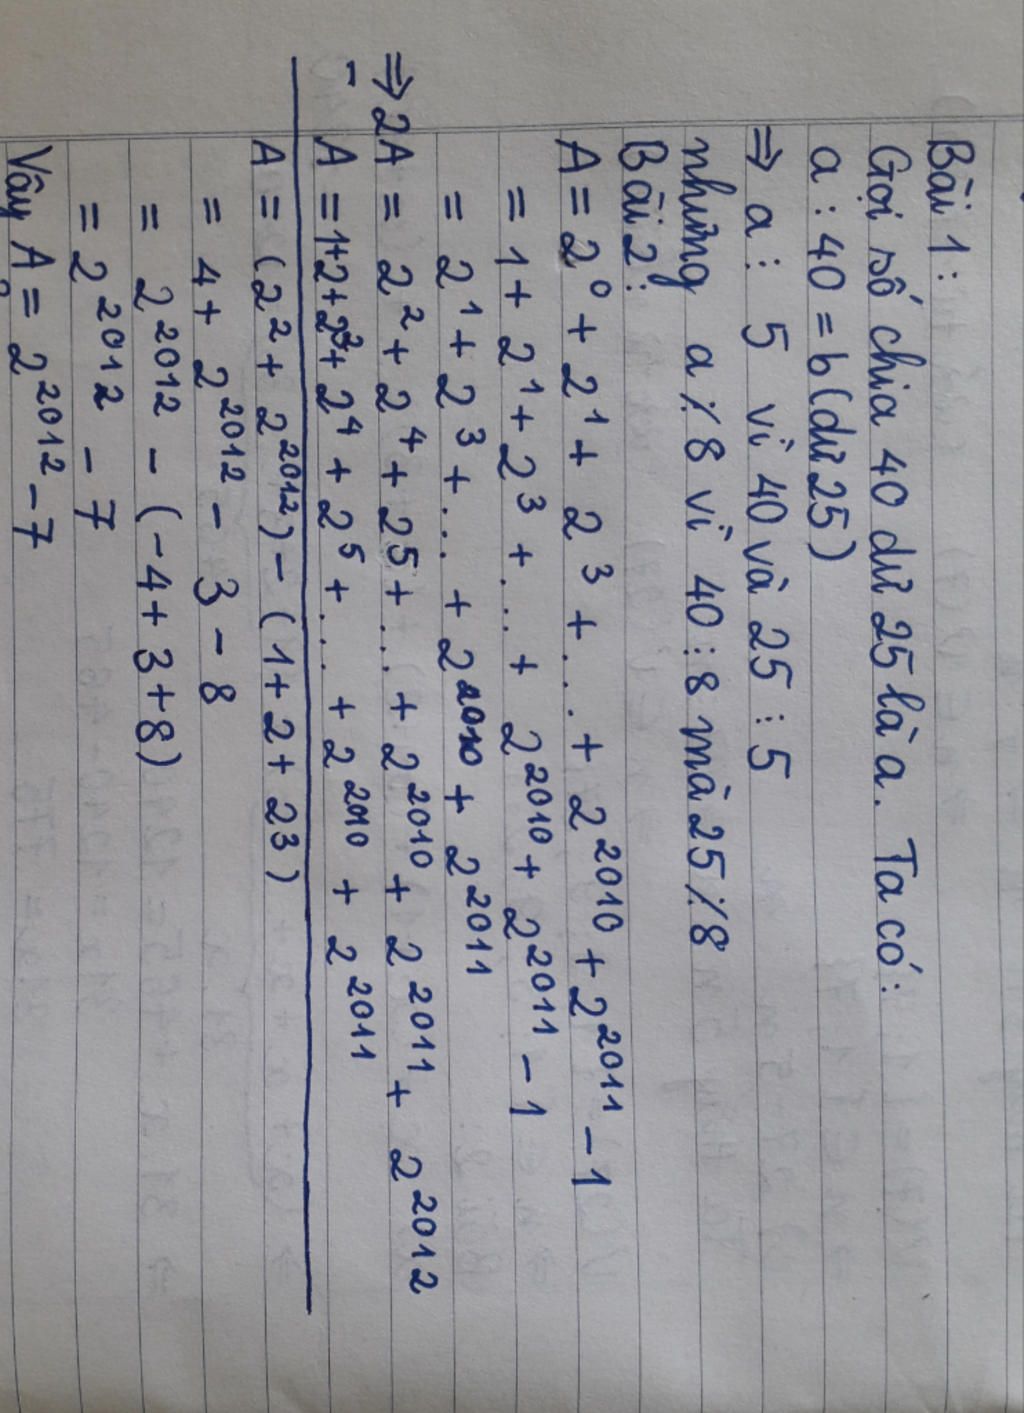 Bài 1:
Gọi số chia 40 dư 25 là a. Ta có:
a : 40 = b (dư 25)
⇒ a ⋮ 5 vì 40 và 25 ⋮ 5
nhưng a ⋮̸ 8 vì 40 ⋮ 8 mà 25 ⋮̸ 8
Bài 2:
A = 2⁰ + 2¹ + 2³ + ... + 2²⁰¹⁰ + 2²⁰¹¹ - 1
= 1 + 2¹ + 2³ + ... + 2²⁰¹⁰ + 2²⁰¹¹ - 1
= 2¹ + 2³ + ... + 2²⁰¹⁰ + 2²⁰¹¹
⇒ 2A = 2² + 2⁴ + 2⁵ + ... + 2²⁰¹⁰ + 2²⁰¹¹ + 2²⁰¹²
- A = 1+2+2³+ 2⁴ + 2⁵ + ... + 2²⁰¹⁰ + 2²⁰¹¹
A = (2² + 2²⁰¹²) - (1 + 2 + 2³)
= 4 + 2²⁰¹² - 3 - 8
= 2²⁰¹² - (-4 + 3 + 8)
= 2²⁰¹² - 7
Vậy A = 2²⁰¹² - 7